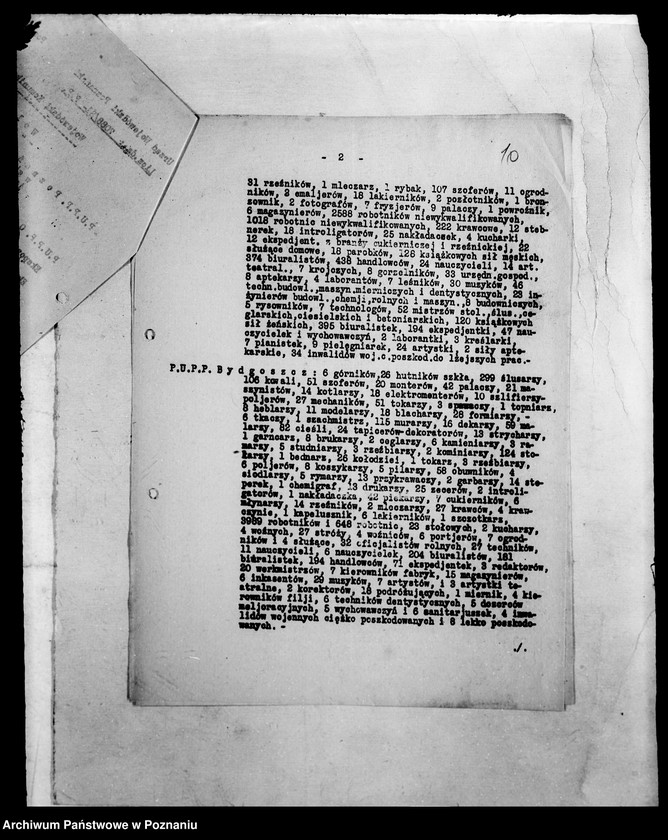 - 2 -
10
31 rzeźników, 1 mleczarz, 1 rybak, 107 szoferów, 11 ogrod-
ników, 2 emaljerów, 18 lakierników, 2 pozłotników, 1 bron-
zownik, 2 fotografów, 7 fryzjerów, 9 palaczy, 1 powroźnik,
6 magazynierów, 2588 robotników niewykwalifikowanych,
1018 robotnic niewykwalifikowanych, 222 krawcowe, 12 steb-
nerek, 18 introligatorów, 25 nakładaczek, 4 kucharki,
12 ekspedjent. z branży cukierniczej i rzeźnickiej, 22
służące domowe, 18 parobków, 126 książkowych sił męskich,
374 biuralistów, 438 handlowców, 24 nauczycieli, 14 art.
teatral., 7 krojczych, 8 gorzelników, 33 urzędn.gospod.,
8 aptekarzy, 4 laborantów, 7 leśników, 30 muzyków, 46
techn.budowl.,maszyn.mierniczych i dentystycznych, 23 in-
żynierów budowl.,chemji,rolnych i maszyn.,8 budowniczych,
5 rysowników, 7 technologów, 52 mistrzów stol.,ślus.,ce-
glarskich,ciesielskich i betoniarskich, 120 książkowych
sił żeńskich, 395 biuralistek, 194 ekspedjentki, 47 nau-
czycielek i wychowawczyń, 2 laborantki, 3 kreślarki,
7 pianistek, 9 pielęgniarek, 24 artystki, 2 siły apte-
karskie, 34 inwalidów woj.c.poszkod.do lżejszych prac.-
P.U.P.P. Bydgoszcz: 6 górników,26 hutników szkła, 299 ślusarzy,
106 kowali, 51 szoferów, 20 monterów, 42 palaczy, 21 ma-
szynistów, 14 kotlarzy, 18 elektromonterów, 10 szlifierzy-
poljerów, 27 mechaników, 51 tokarzy, 3 spawaczy, 1 topniarz,
8 heblarzy, 11 modelarzy, 18 blacharzy, 28 formiarzy, -
6 tkaczy, 1 szachmistrz, 115 murarzy, 16 dekarzy, 59 ma-
larzy, 82 cieśli, 24 tapicerów-dekoratorów, 13 strycharzy,
1 garncarz, 8 brukarzy, 2 ceglarzy, 6 kamieniarzy, 3 ra-
marzy, 5 studniarzy, 3 rzeźbiarzy, 2 kominiarzy, 124 sto-
larzy, 1 bednarz, 26 kołodziei, 1 tokarz, 3 rzeźbiarzy,
6 poljerów, 8 koszykarzy, 5 pilarzy, 58 obuwników, 4
siodlarzy, 5 rymarzy, 13 przykrawaczy, 2 garbarzy, 14 ste-
perek, 1 chemigraf, 13 drukarzy, 25 zecerów, 2 introli-
gatorów, 1 nakładaczka, 42 piekarzy, 7 cukierników, 6
młynarzy, 14 rzeźników, 2 mleczarzy, 27 krawców, 4 kraw-
czynie, 1 kapelusznik, 6 lakierników, 1 szczotkarz,
3969 robotników i 646 robotnic, 23 stołowych, 2 kucharzy,
4 woźnych, 27 stróży, 4 woźniców, 6 portjerów, 7 ogrod-
ników i 4 służące, 32 oficjalistów rolnych, 27 techników,
11 nauczycieli, 6 nauczycielek, 204 biuralistów, 181
biuralistek, 194 handlowców, 71 ekspedjentek, 3 redaktorów,
20 werkmistrzów, 7 kierowników fabryk, 15 magazynierów,
6 inkasentów, 29 muzyków, 7 artystów, i 3 artystki te-
atralne, 2 korektorów, 18 podróżujących, 1 miernik, 4 kie-
rowników filji, 6 techników dentystycznych, 5 dozorców
meljoracyjnych, 5 wychowawczyń i 6 sanitarjuszek, 4 inwa-
lidów wojennych ciężko poszkodowanych i 8 lekko poszkodo-
wanych. -
./.
Archiwum Państwowe w Poznaniu